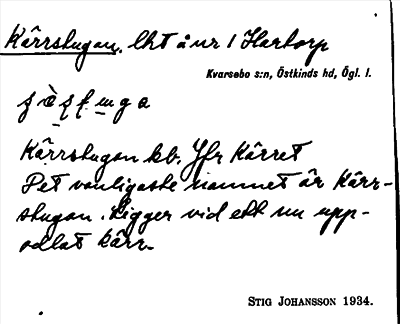 Kärrstugan, lht å nr 1 Hartorp
Kvarsebo s:n, Östkinds hd, Ögl. l.
Kärrstugan kb. Jfr Kärret
Det vanligaste namnet är Kärr-
stugan. Ligger vid ett nu upp-
odlat kärr.
STIG JOHANSSON 1934.